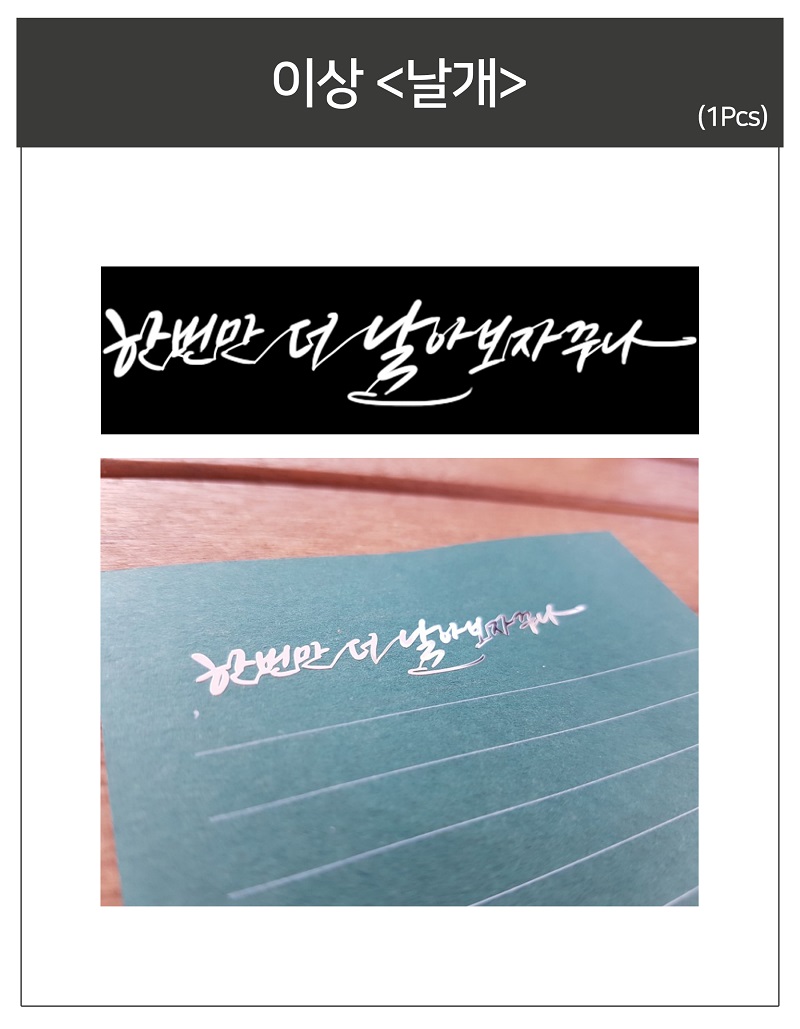 이상 <날개>
(1Pcs)
한번만 더 날아보자꾸나
한번만 더 날아보자꾸나